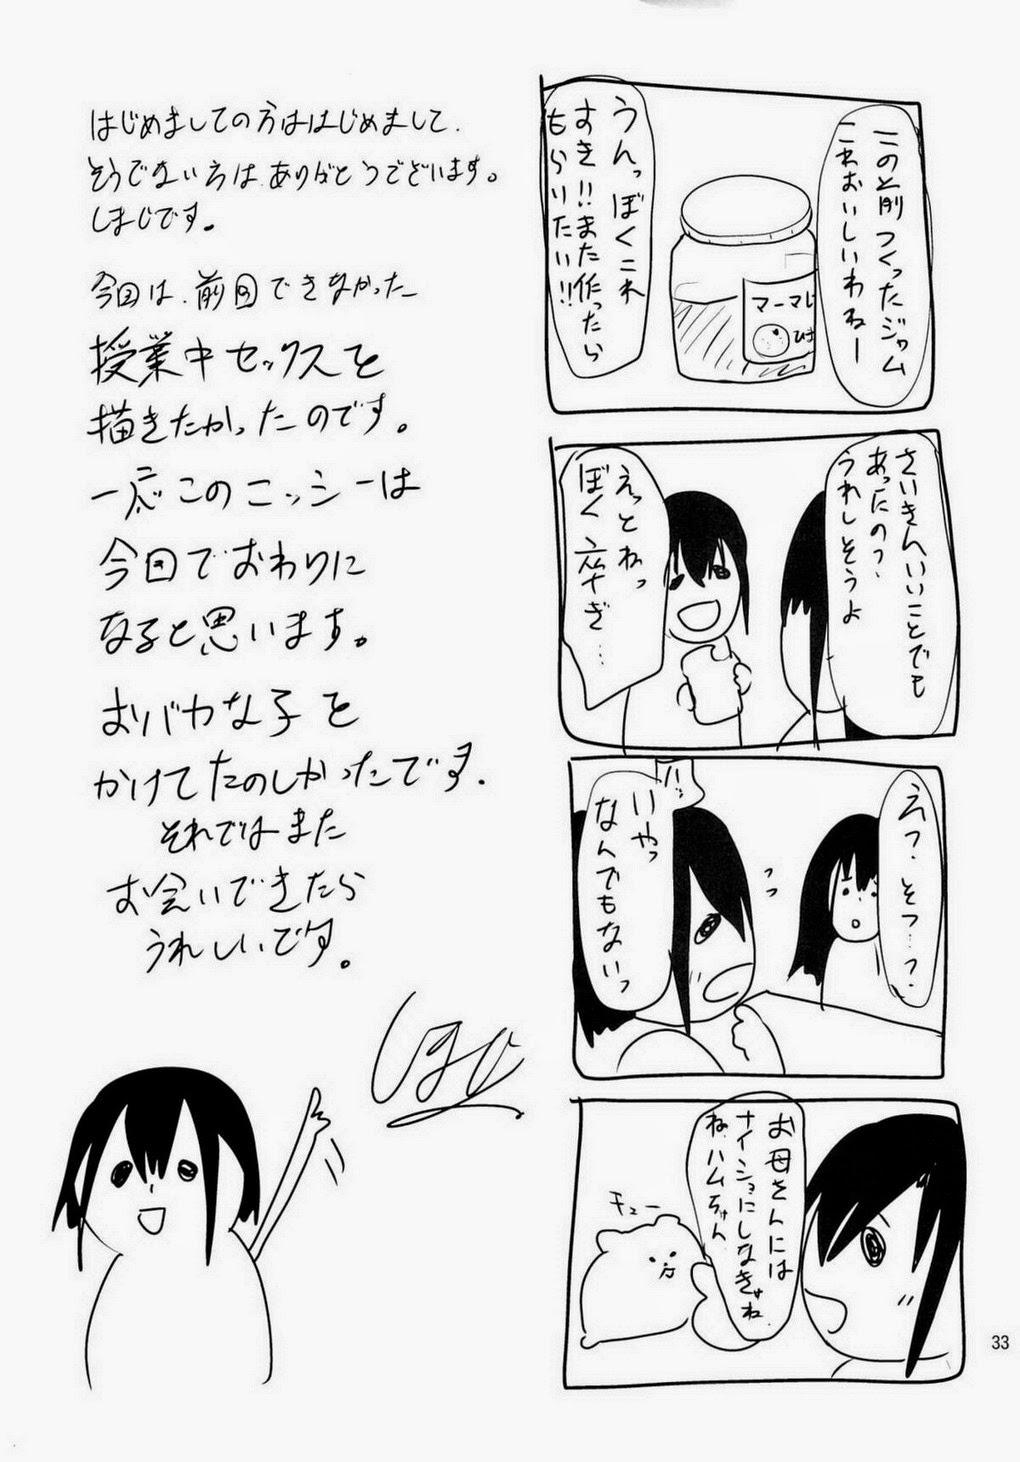 この前つくったジャム
これおいしいわねー
うんっぼくこれ
すき!!また作ったら
もらいたい!!
マーマレ
さいきんいいことでも
あったの?
うれしそうよ
えっとねっ
ぼく卒ぎ…
えっ、そっ…っ、
いやっ
なんでもないっ
っっ
お母さんには
ナイショにしなきゃね
ね、ハムちゃん
チュー
はじめましての方ははじめまして、
そうでない方はありがとうございます。
しまじです。
今回は、前回できなかった
授業中セックスを
描きたかったのです。
一応このニッシーは
今回でおわりに
なると思います。
おバカな子を
かけてたのしかったです。
それではまた
お会いできたら
うれしいです。
33